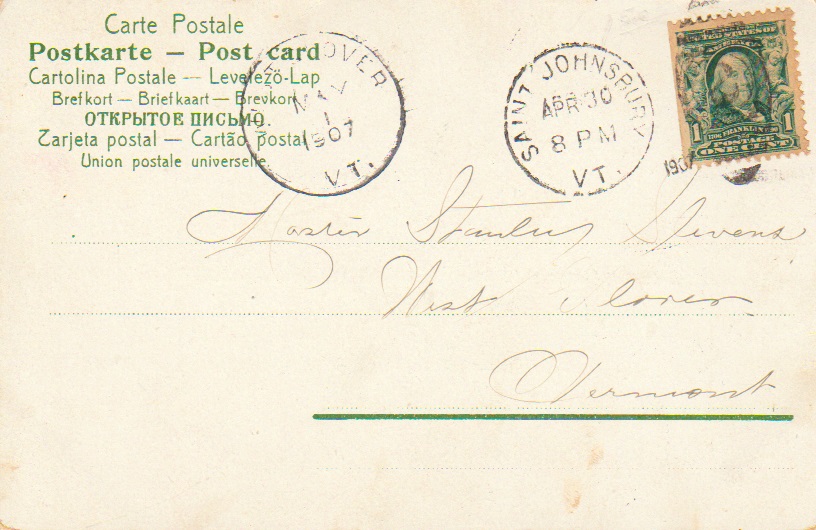 Carte Postale
Postkarte — Post card
Cartolina Postale — Levelező-Lap
Brefkort — Briefkaart — Brevkort
ОТКРЫТОЕ ПИСЬМО.
Zarjeta postal — Cartão postal
Union postale universelle.
OVER
MAY
1
1907
VT.
SAINT JOHNSBURY
APR 30
8 PM
VT.
1907
UNITED STATES OF
AMERICA
FRANKLIN
1 POSTAGE 1
ONE CENT
Master Stanley Stevens
West Glover
Vermont